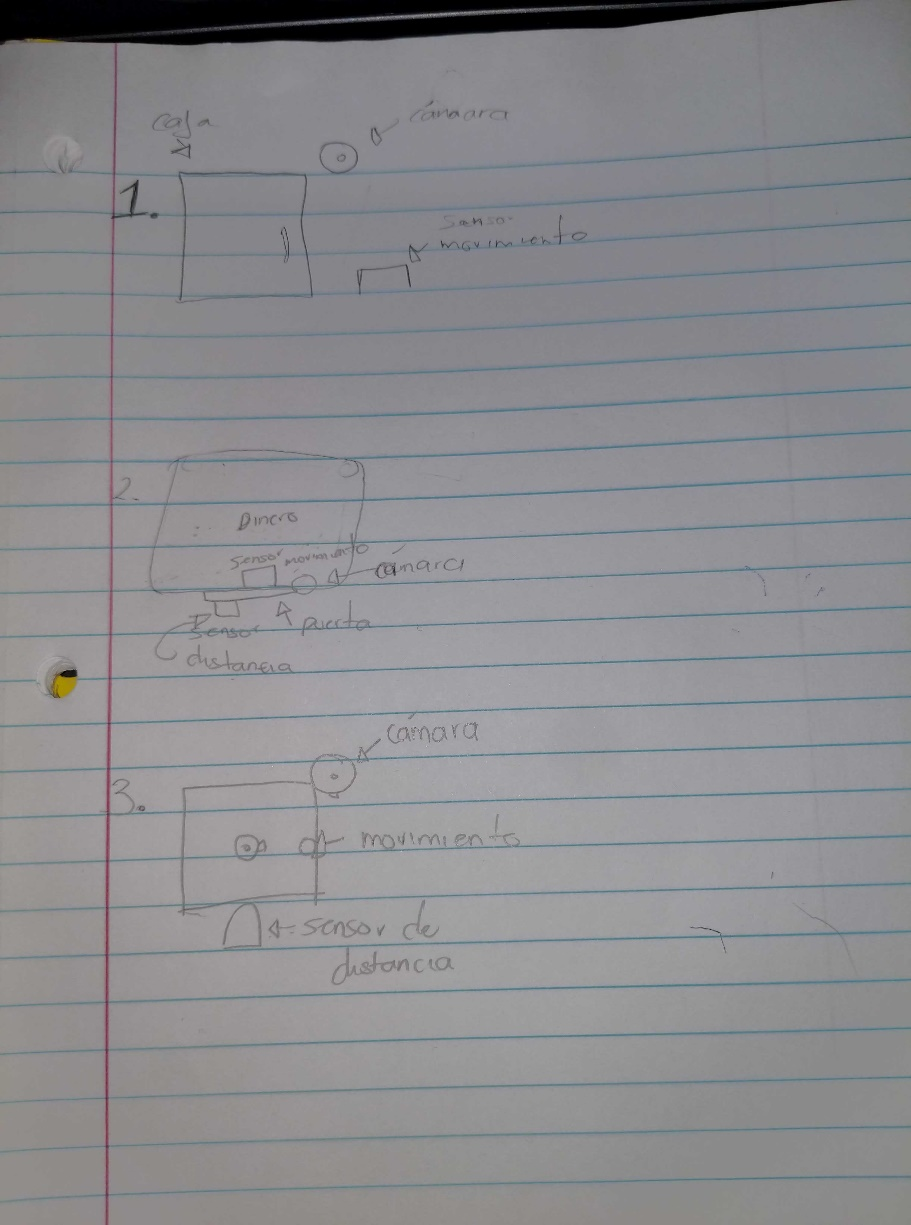 caja
cámara
1.
Senso
movimiento
2.
Dinero
Sensor movimiento
cámara
Sensor
puerta
distancia
cámara
3.
movimiento
sensor de
distancia